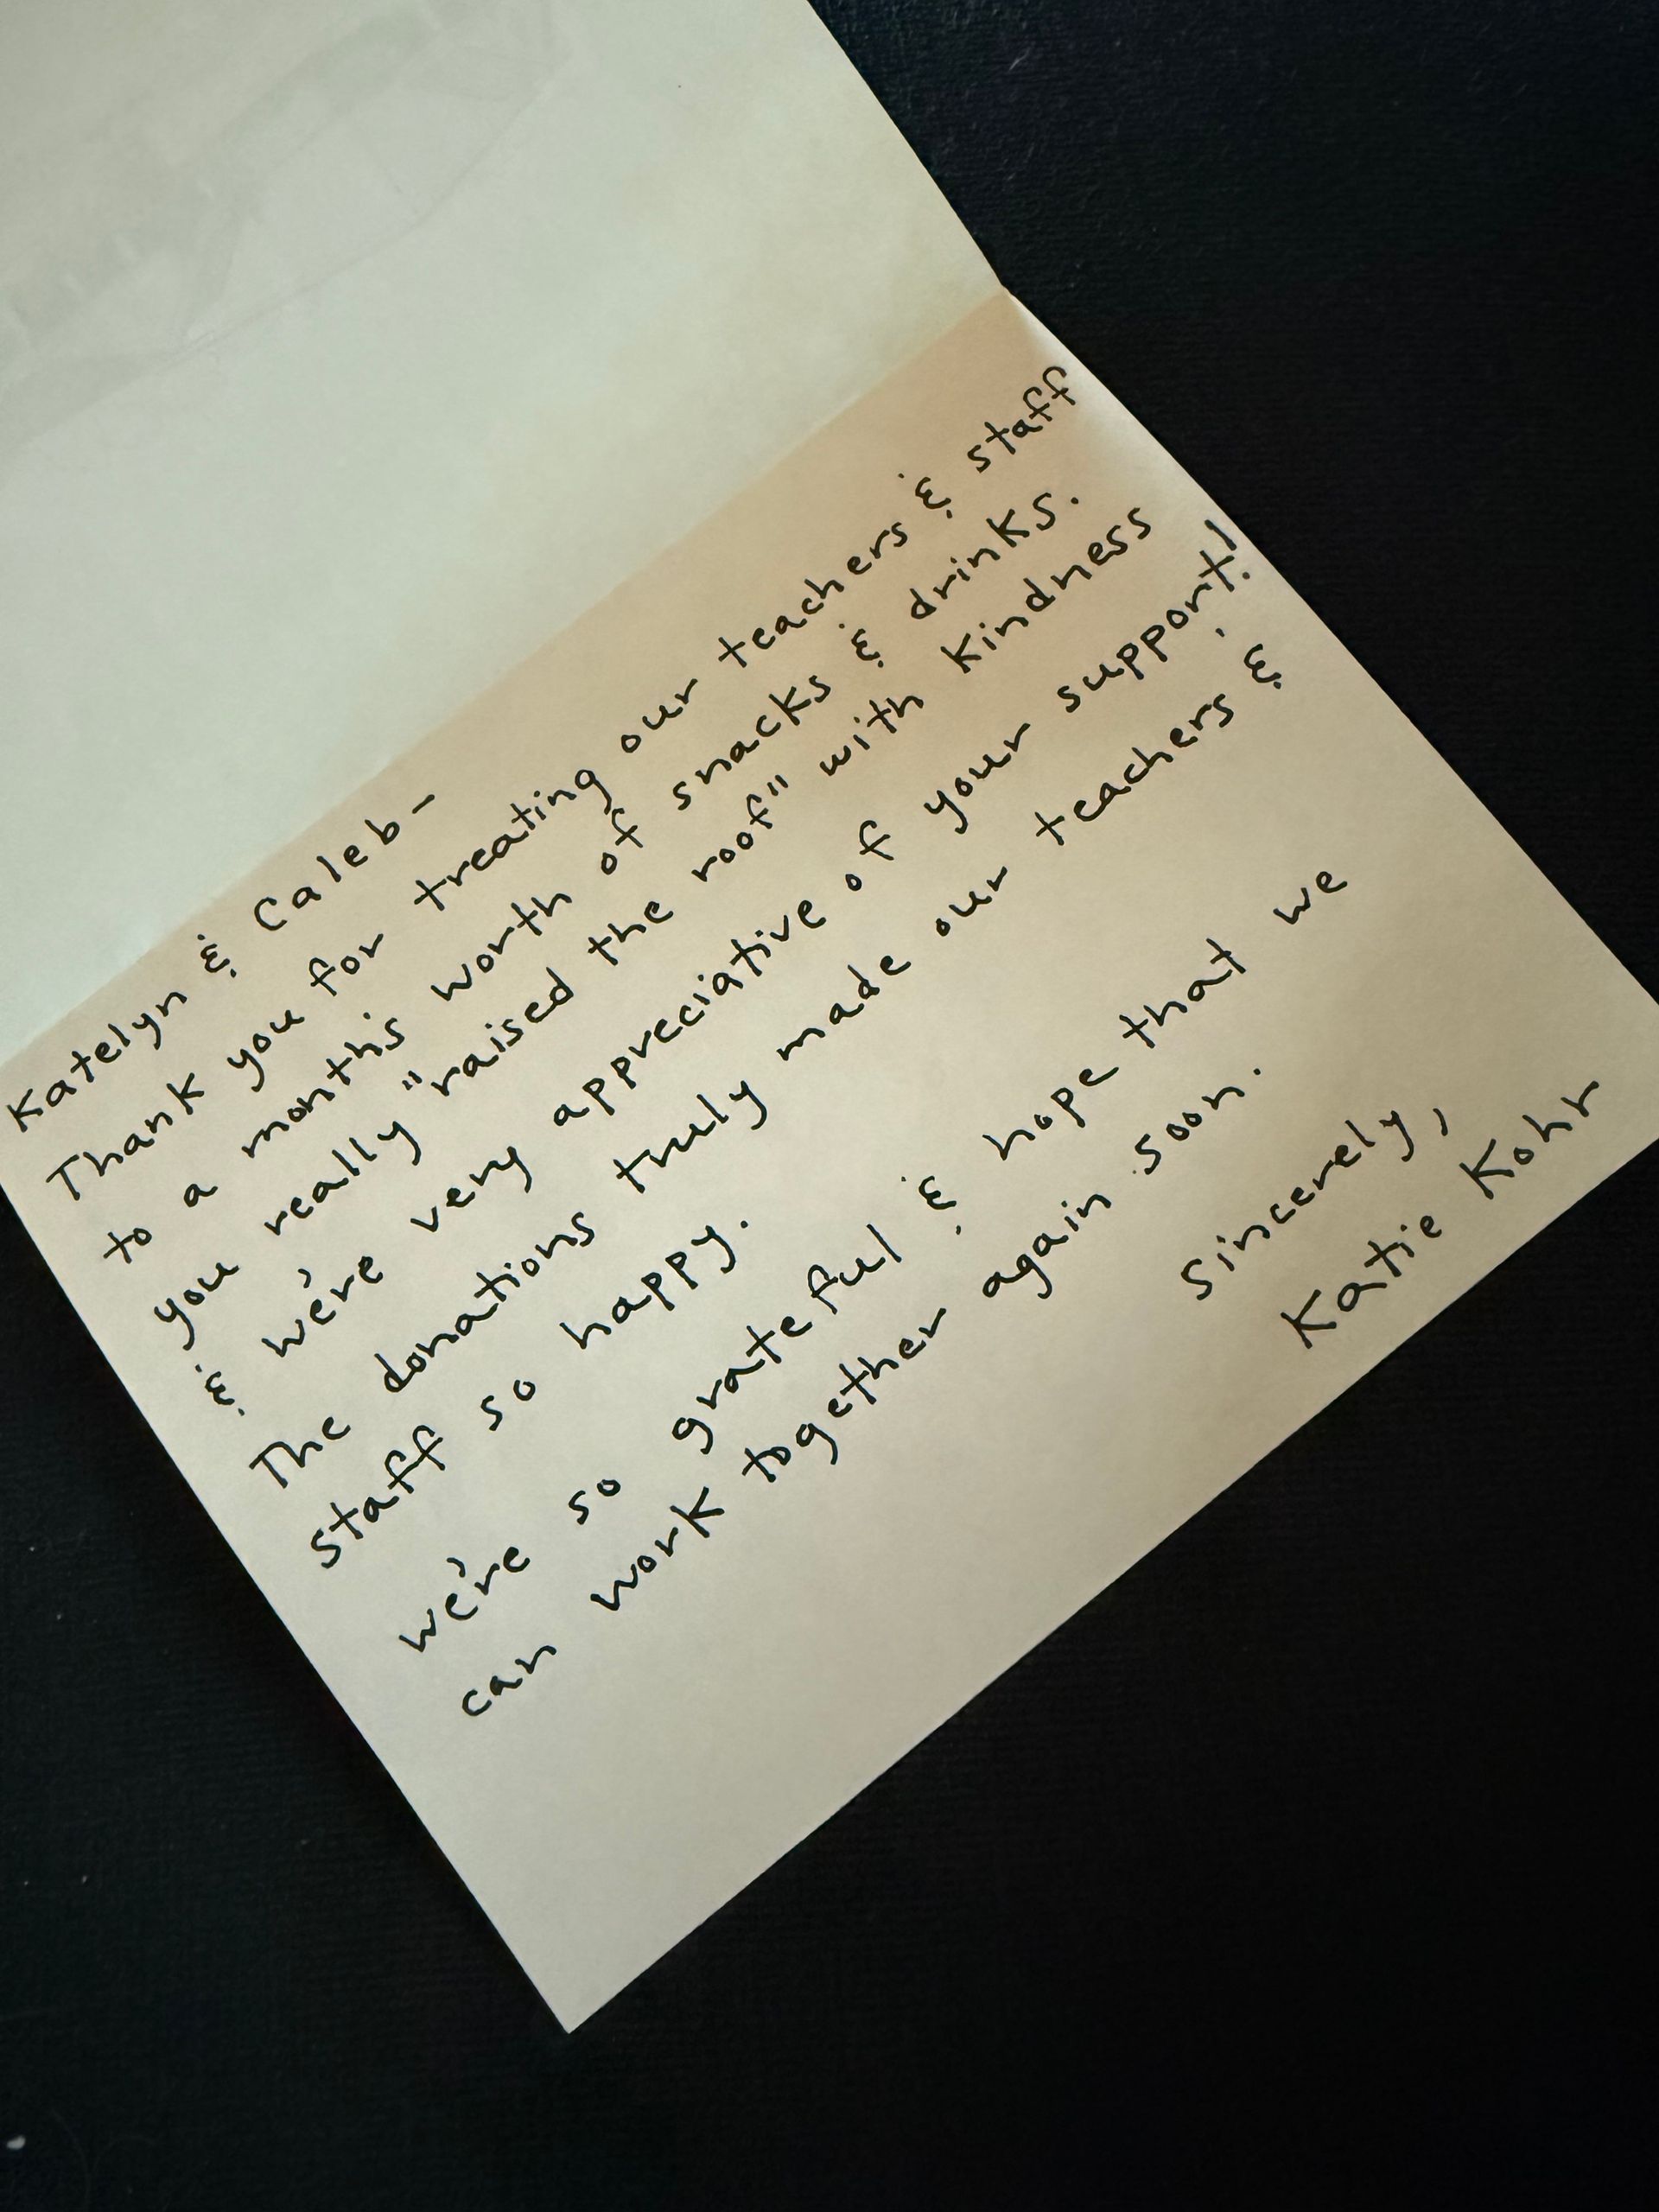 Katelyn & Caleb-
Thank you for treating our teachers & staff
to a month's worth of snacks & drinks.
you really "raised the roof" with kindness
& we're very appreciative of your support!
The donations truly made our teachers &
staff so happy.
we're so grateful & hope that we
can work together again soon.
Sincerely,
Katie Kohr